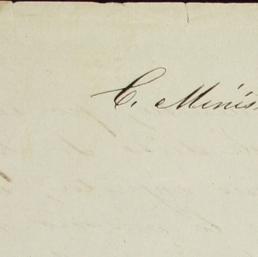 C. Minis